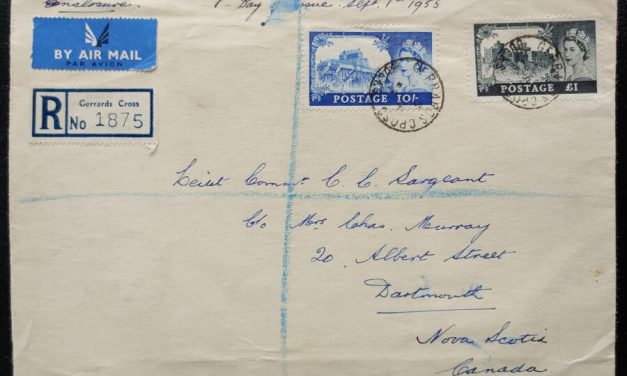 Enclosure. 1st Day of Issue. Sept. 1st 1955
BY AIR MAIL
PAR AVION
R
Gerrards Cross
No 1875
POSTAGE 10/-
POSTAGE £1
GERRARDS CROSS
Lieut Commr. C. C. Sargeant
c/o Mrs Chas. Murray
20 Albert Street
Dartmouth
Nova Scotia
Canada